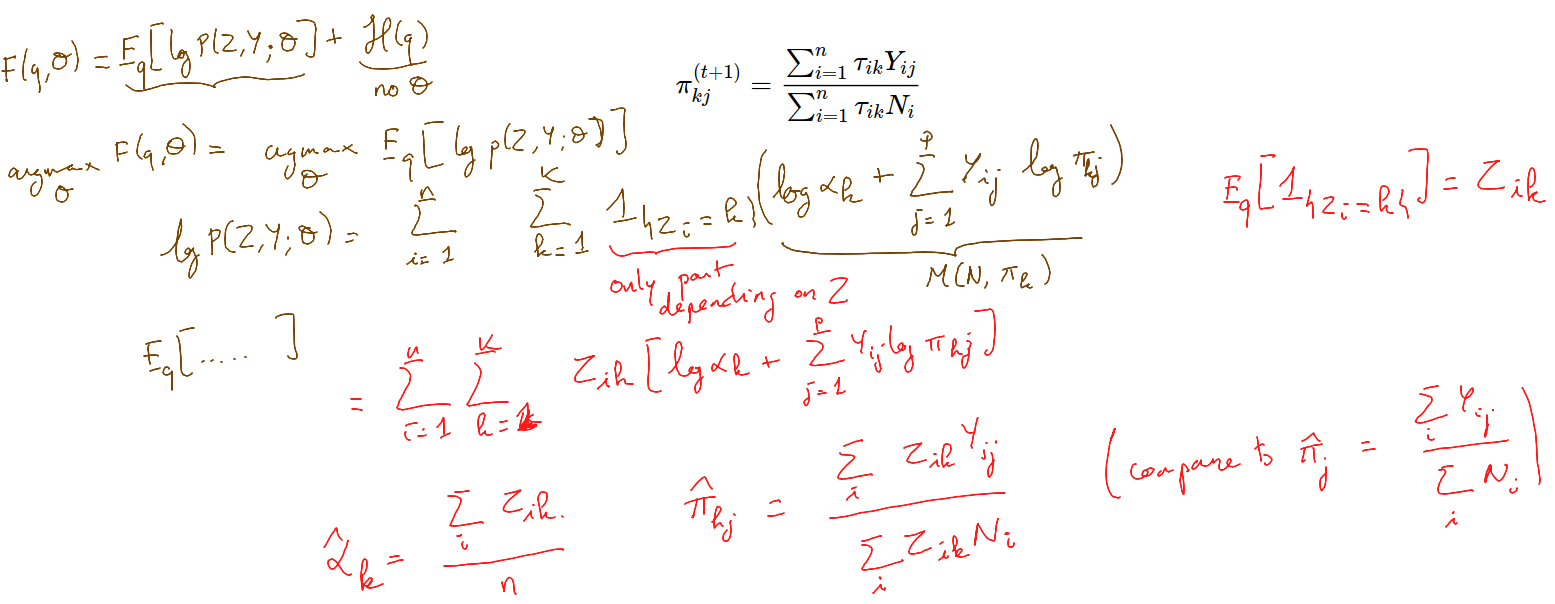 F(q,θ) = E_q[log p(Z,Y;θ)] + H(q)
no θ
π_{kj}^{(t+1)} = \frac{∑_{i=1}^{n} τ_{ik} Y_{ij}}{∑_{i=1}^{n} τ_{ik} N_i}
argmax_θ F(q,θ) = argmax_θ E_q[log p(Z,Y;θ)]
log p(Z,Y;θ) = ∑_{i=1}^{n} ∑_{k=1}^{K} 1_{\{Z_i=k\}} (log α_k + ∑_{j=1}^{p} Y_{ij} log π_{kj})
E_q[1_{\{Z_i=k\}}] = τ_{ik}
only part
depending on Z
M(N, π_k)
E_q[.....]
= ∑_{i=1}^{n} ∑_{k=1}^{K} τ_{ik} [log α_k + ∑_{j=1}^{p} Y_{ij} log π_{kj}]
\hat{α}_k = \frac{∑_i τ_{ik}}{n}
\hat{π}_{kj} = \frac{∑_i τ_{ik} Y_{ij}}{∑_i τ_{ik} N_i}
(compare to \hat{π}_j = \frac{∑_i Y_{ij}}{∑_i N_i})